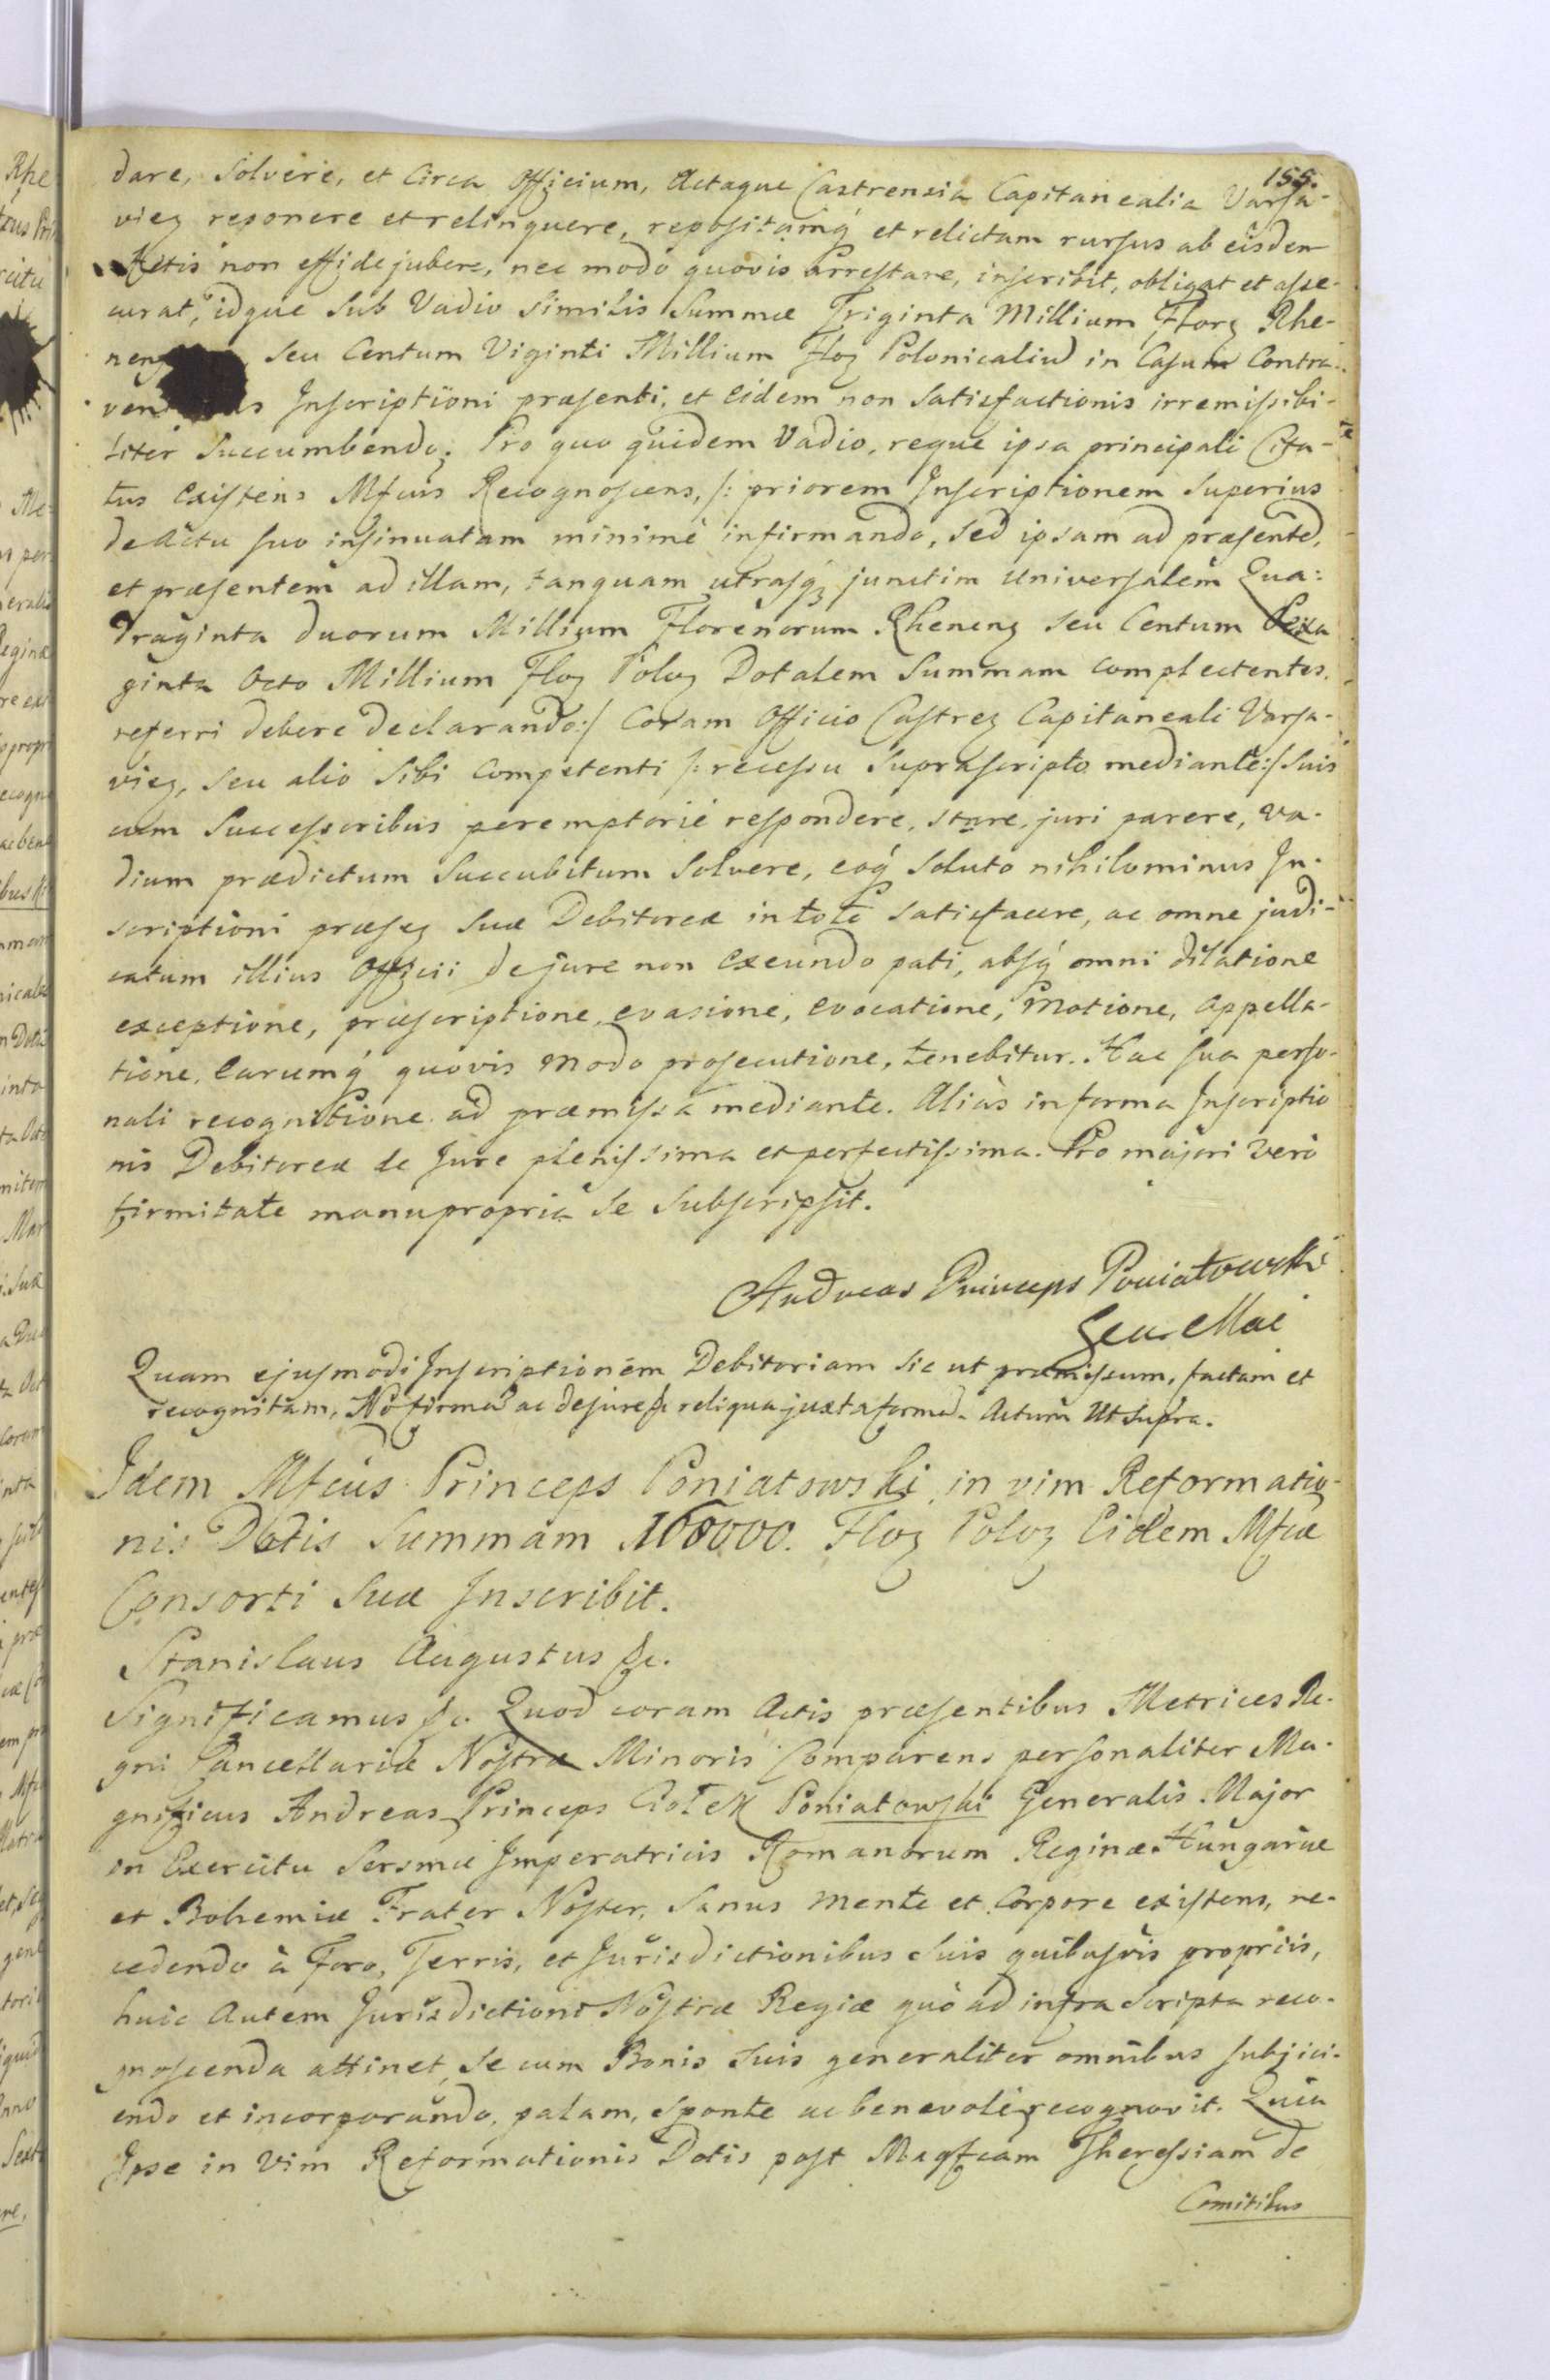 155.
dare, Solvere, et Circa Officium, Actaque Castrensia Capitanealia Varsa-
vieꝫ reponere et relinquere, repositamq́ et relictam rursus ab eisdem
Actis non effidejubere, nec modo quovis Arrestare, inscribit, obligat et asse-
curat, idque Sub Vadio Similis Summæ Triginta Millium Florꝫ Rhe-
nenꝫ seu Centum Viginti Millium Floꝫ Polonicaliū in Casum Contra-
ven Inscriptioni præsenti, et eidem non Satisfactionis irremissibi-
liter Succumbendo; Pro quo quidem Vadio, reque ipsa principali Cita-
tus existens Mfcus Recognoscens, /: priorem Inscriptionem Superius
de Actu suo insinuatam minimè infirmando, sed ipsam ad præsentē,
et præsentem ad illam, tanquam utrasqꝫ junctim universalem Qua:
draginta duorum Millium Florenorum Rhenenꝫ seu Centum Sexa
ginta Octo Millium Floꝫ Poloꝫ Dotalem Summam complectentes,
referri debere declarando:/ Coram Officio Castreꝫ Capitaneali Varsa-
vieꝫ, seu alio Sibi Competenti /: recessu Suprascripto mediante:/ Suis
cum Successoribus peremptorie respondere, stare, juri parere, va-
dium prædictum Succubitum Solvere, eoq́ Soluto nihilominus In-
scriptioni præseꝫ Suæ Debitoreæ in toto Satisfacere, ac omne judi-
catum illius Officii de jure non exeundo pati, absq́ omni dilatione
exceptione, præscriptione, evasione, evocatione, Motione, Appella-
tione, Earumq́ quovis modo prosecutione, tenebitur. Hac sua perso-
nali recognitione ad præmissa mediante. Aliàs in forma Inscriptio
nis Debitoreæ de Jure plenissima et perfectissima. Pro majori verò
firmitate manu propria Se Subscripsit.
Andreas Princeps Poniatowski
Gen. Mai
Quam ejusmodi Inscriptionem Debitoriam Sic ut præmissum, factam et
recognitam, No firma ac de jure &c reliqua juxta formā. Actum Ut Supra.
Idem Mfcus Princeps Poniatowski in vim Reformatio-
nis Dotis Summam 168000. Floꝫ Poloꝫ Eidem Mfcæ
Consorti Suæ Inscribit.
Stanislaus Augustus &c.
Significamus &c. Quod coram Actis præsentibus Metrices Re-
gni Cancellariæ Nostræ Minoris Comparens personaliter Ma-
gnificus Andreas Princeps Ciołek Poniatowski Generalis Major
in Exercitu Sersmæ Imperatricis Romanorum Reginæ Hungariæ
et Bohemiæ Frater Noster, Sanus mente et Corpore existens, re-
cedendo à Foro, Terris, et Jurisdictionibus Suis quibusvis propriis,
huic Autem Jurisdictioni Nostræ Regiæ quò ad infra Scripta reco-
gnoscenda attinet, Se cum Bonis Suis generaliter omnibus subjici-
endo et incorporando, palam, Sponte ac benevolè recognovit. Quia
Ipse in vim Reformationis Dotis post Magfcam Theressiam de
Comitibus